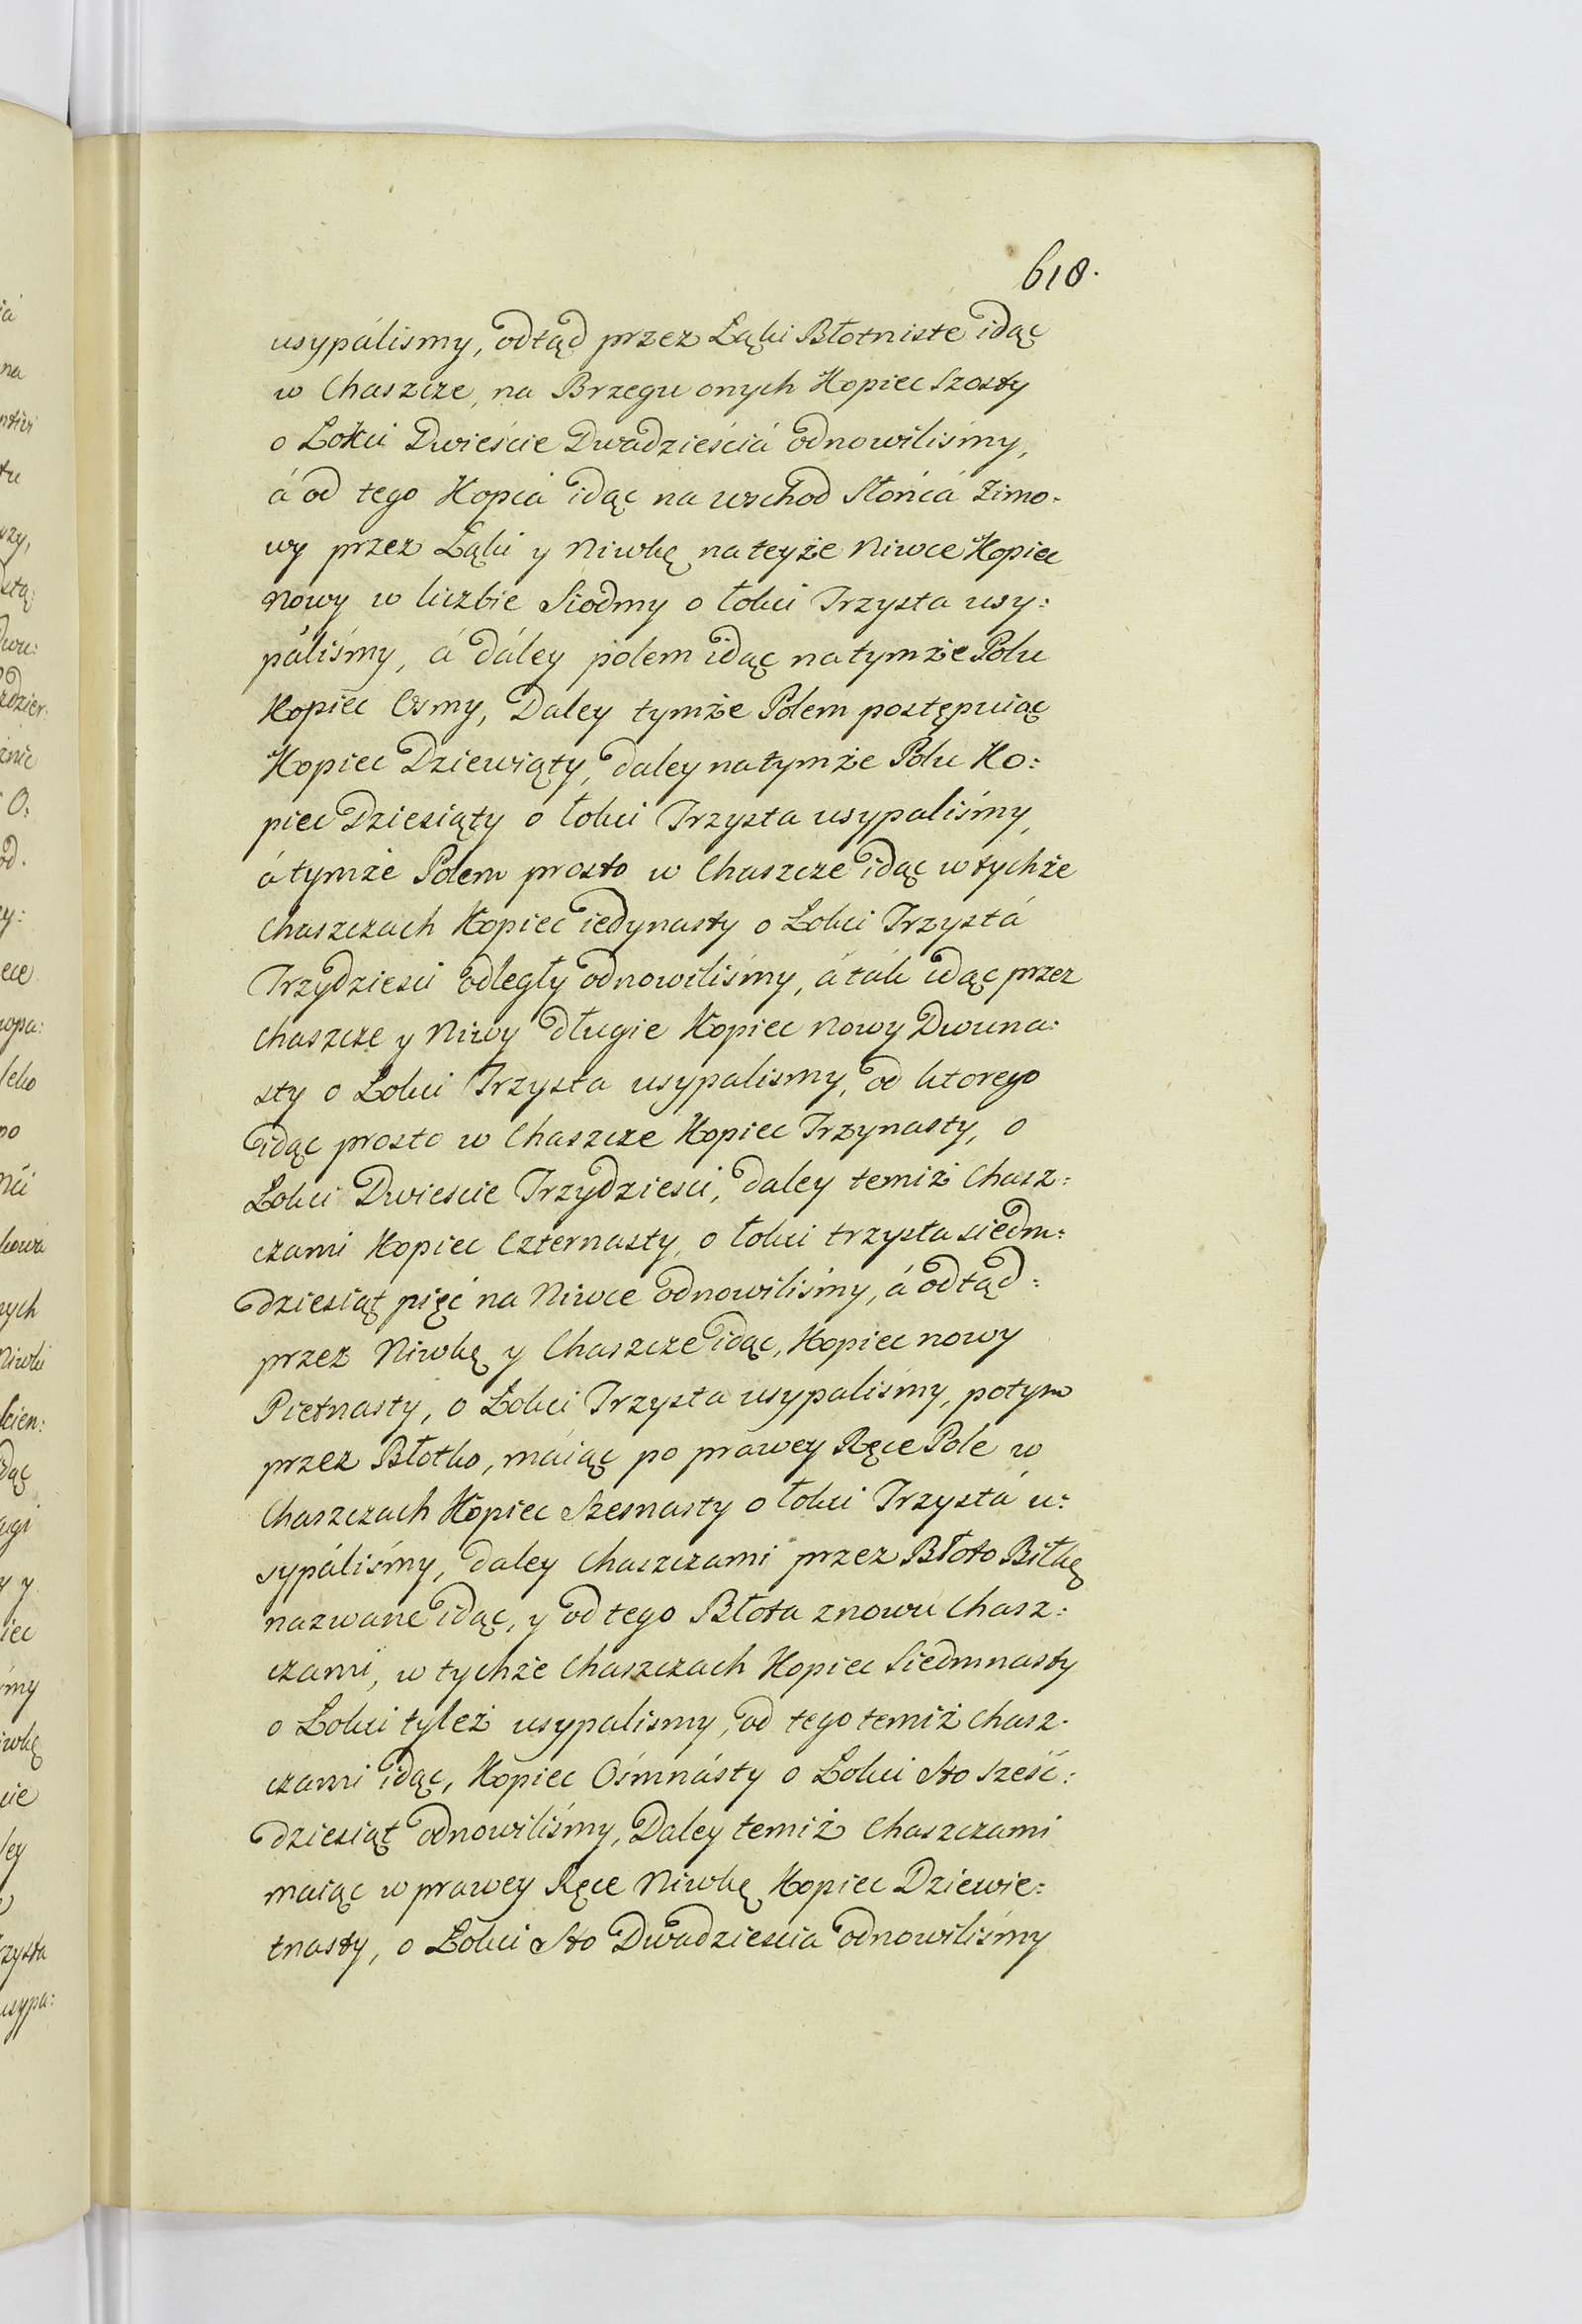 618.
usypálismy, odtąd przez Łąki Błotniste idąc
w Chaszcze, na Brzegu onych Kopiec Szosty
o Łokci Dwieście Dwadzieściá odnowiliśmy,
á od tego Kopcá idąc na wschod Słońcá Zimo-
wy przez Łąki y Niwkę na teyże Niwce Kopiec
nowy w liczbie Siodmy o łokci Trzysta usy:
páliśmy, á dáley polem idąc na tymże Polu
Kopiec Osmy, Daley tymże Polem postępuiąc
Kopiec Dziewiąty, daley na tymże Polu Ko:
piec Dziesiąty o łokci Trzysta usypaliśmy,
á tymże Polem prosto w Chaszcze idąc w tychże
Chaszczach Kopiec iedynasty o Łokci Trzystá
Trzydziesci odległy odnowiliśmy, á ták idąc przez
Chaszcze y Niwy długie Kopiec nowy Dwuna:
sty o Łokci Trzysta usypalismy, od ktorego
idąc prosto w Chaszcze Kopiec Trzynasty, o
Łokci Dwiescie Trzydziesci, daley temiż Chasz:
czami Kopiec Czternasty, o łokci trzysta siedm:
dziesiąt pięć na Niwce odnowiliśmy, á odtąd:
przez Niwkę y Chaszcze idąc, Kopiec nowy
Pietnasty, o Łokci Trzysta usypaliśmy, potym
przez Błotko, máiąc po prawey Ręce Pole w
Chaszczach Kopiec Szesnasty o łokci Trzystá u:
sypáliśmy, daley Chaszczami przez Błoto Bitkę
nazwane idąc, y od tego Błota znowu Chasz:
czami, w tychże Chaszczach Kopiec Siedmnasty
o Łokci tyleż usypalismy, od tego temiż Chasz-
czami idąc, Kopiec Ośmnásty o Łokci Sto sześć:
dziesiąt odnowiliśmy, Daley temiż Chaszczami
maiąc w prawey Ręce Niwkę Kopiec Dziewie:
tnasty, o Łokci Sto Dwadziescia odnowiliśmy